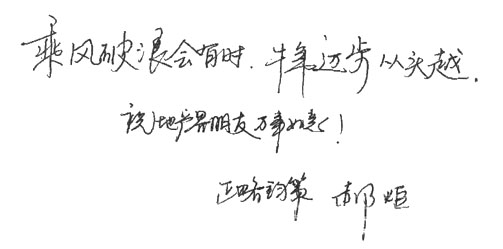 乘风破浪会有时，牛年迈步从头越。
祝地产界朋友万事如意！
正略钧策 郝炬